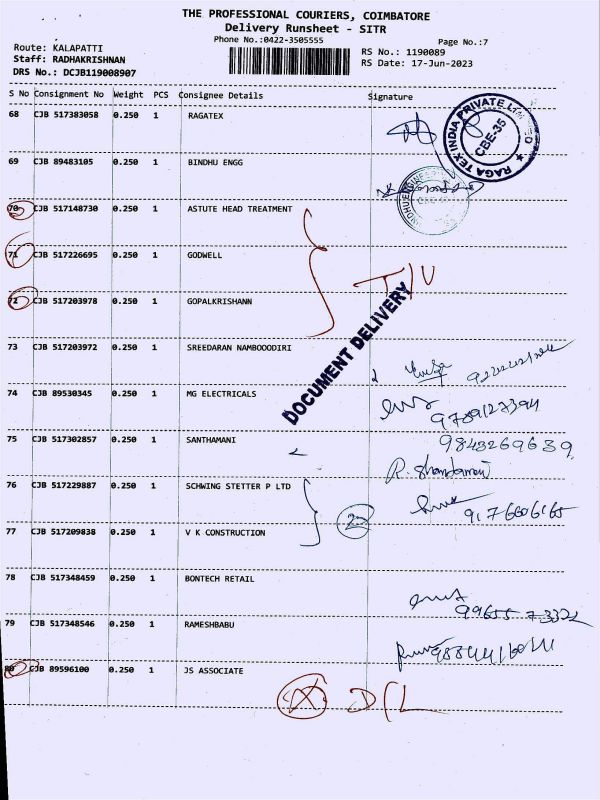 THE PROFESSIONAL COURIERS, COIMBATORE
Delivery Runsheet - SITR
Phone No.:0422-3505555
Page No.:7
Route: KALAPATTI
RS No.: 1190089
Staff: RADHAKRISHNAN
RS Date: 17-Jun-2023
DRS No.: DCJB119008907
S No Consignment No Weight PCS Consignee Details Signature
68 CJB 517383058 0.250 1 RAGATEX
RAGA TEX INDIA PRIVATE LIMITED
CBE-35
69 CJB 89483105 0.250 1 BINDHU ENGG
70 CJB 517148730 0.250 1 ASTUTE HEAD TREATMENT
71 CJB 517226695 0.250 1 GODWELL
72 CJB 517203978 0.250 1 GOPALKRISHANN
DOCUMENT DELIVERY
73 CJB 517203972 0.250 1 SREEDARAN NAMBOOODIRI
74 CJB 89530345 0.250 1 MG ELECTRICALS
9789127394
75 CJB 517302857 0.250 1 SANTHAMANI
9843269639
76 CJB 517229887 0.250 1 SCHWING STETTER P LTD
77 CJB 517209838 0.250 1 V K CONSTRUCTION
78 CJB 517348459 0.250 1 BONTECH RETAIL
79 CJB 517348546 0.250 1 RAMESHBABU
80 CJB 89596100 0.250 1 JS ASSOCIATE
D/L